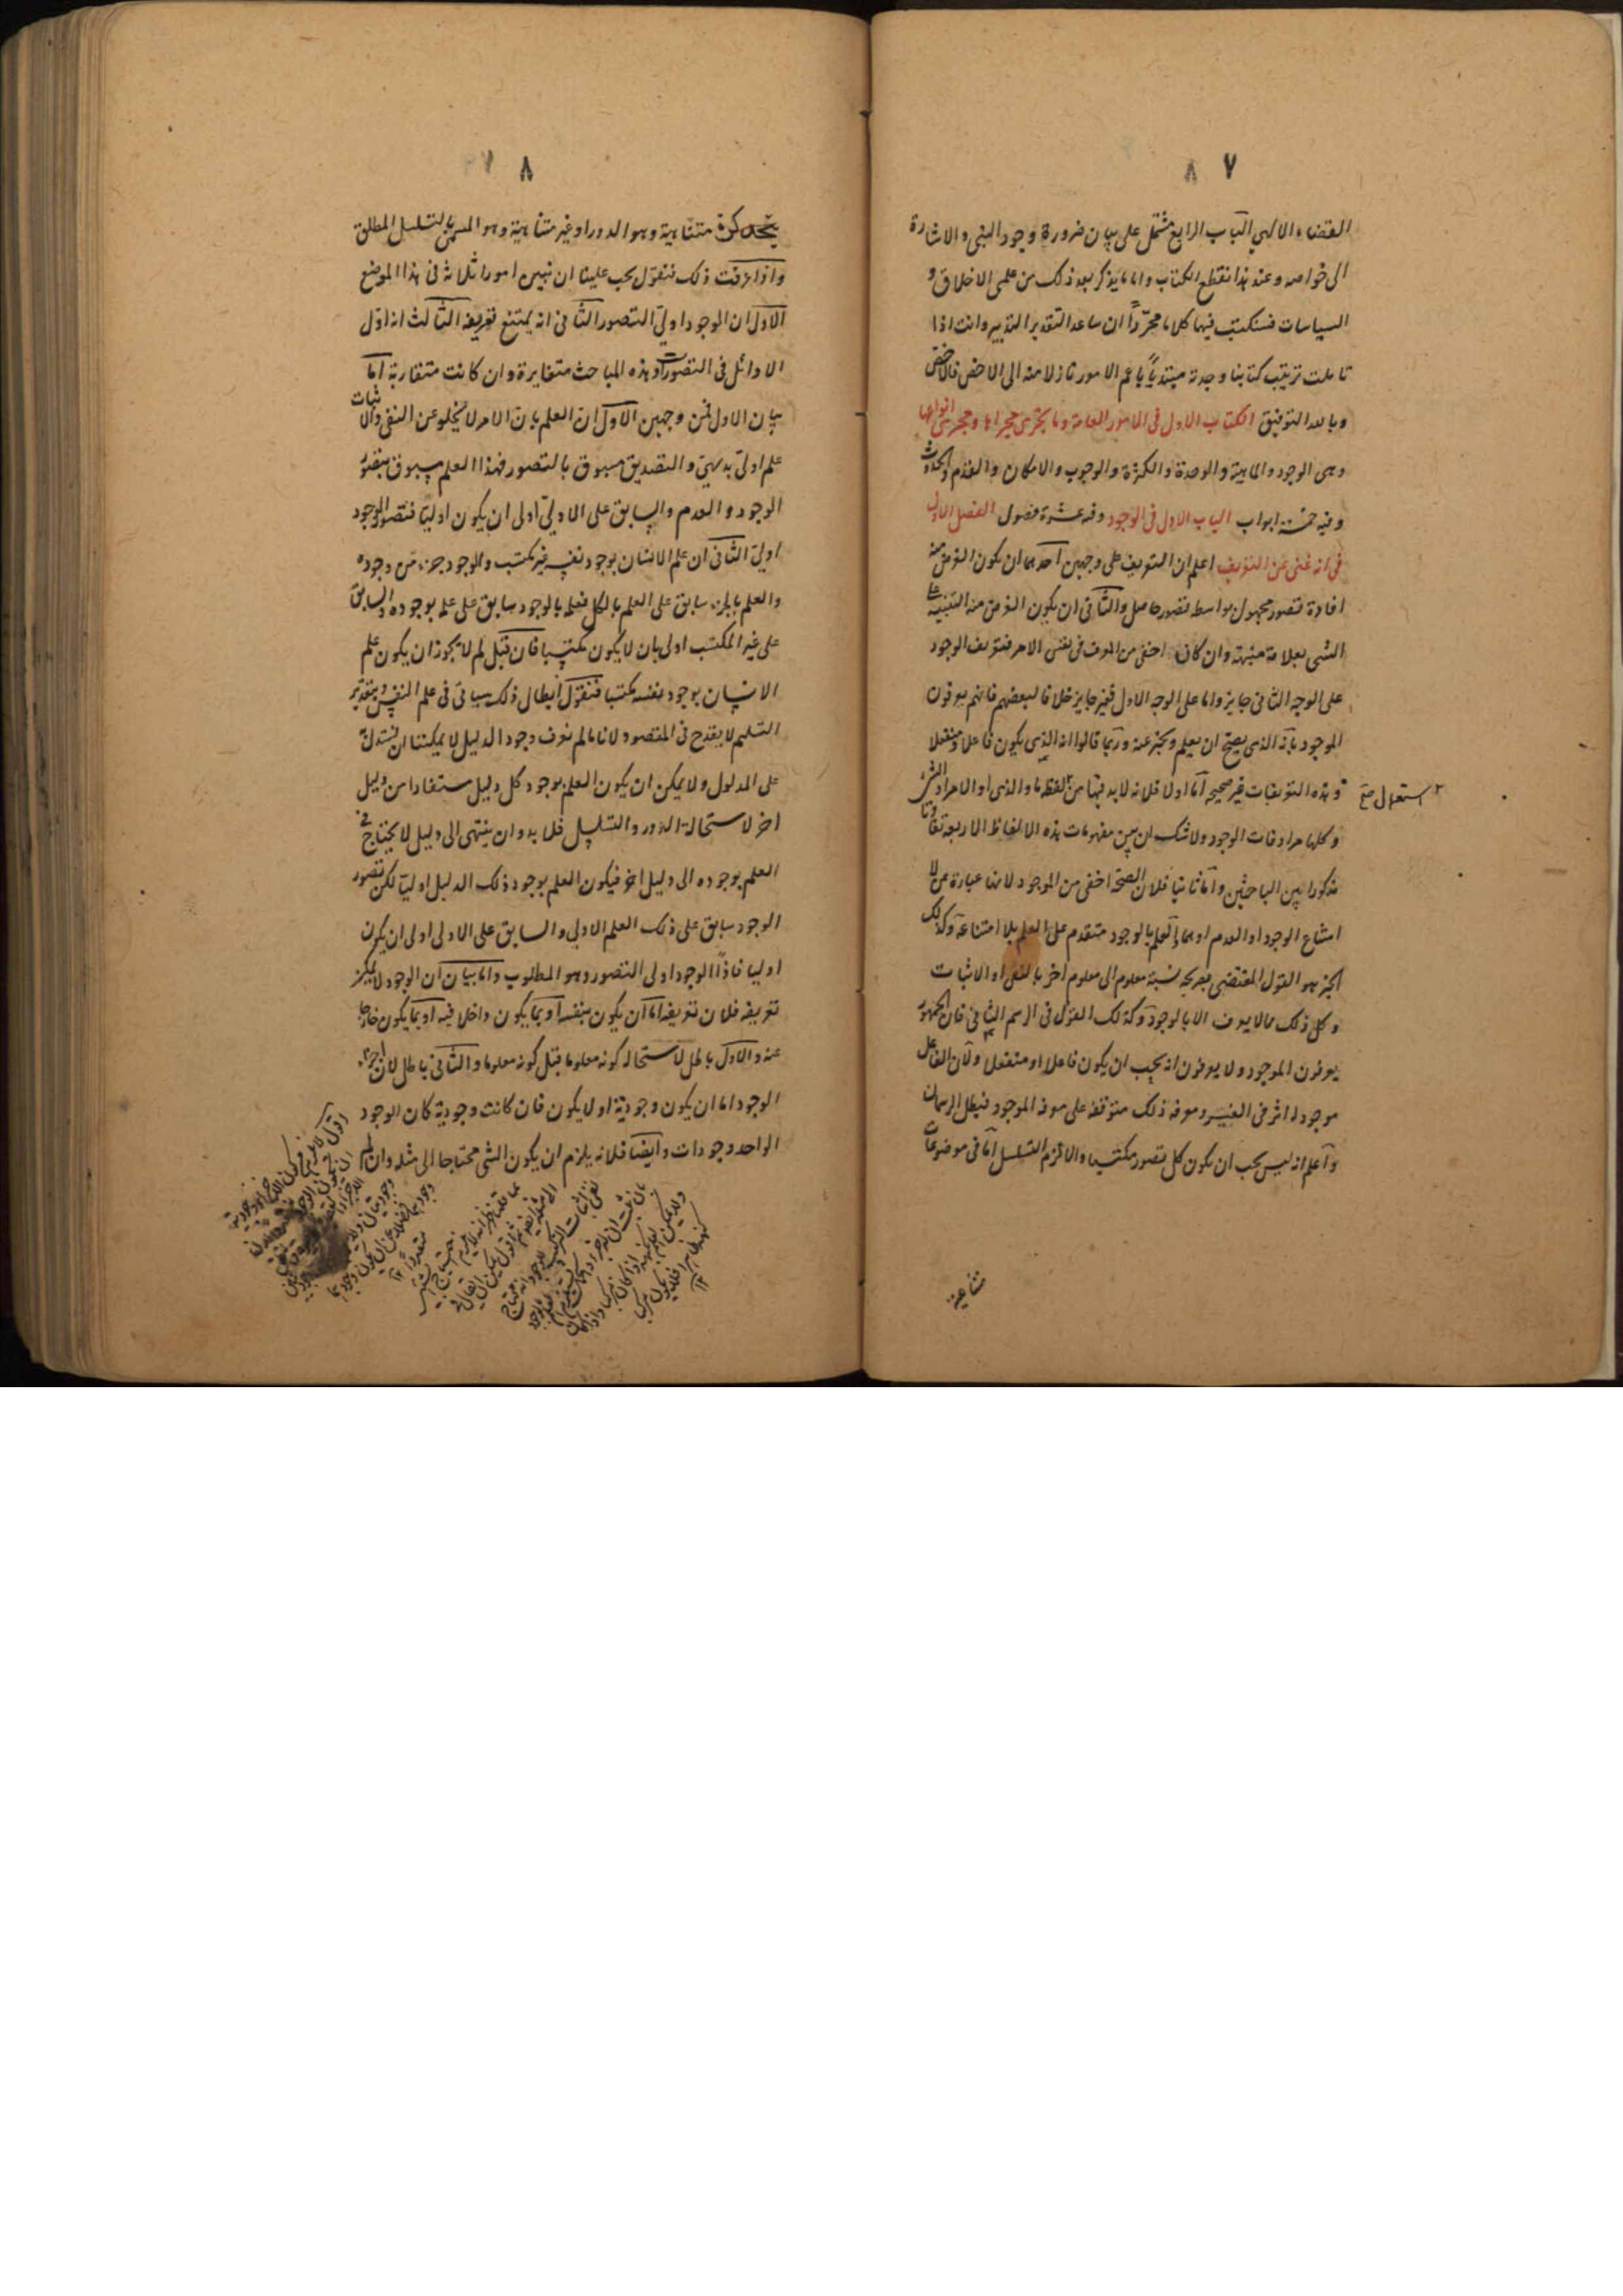 ٧ ٨
القضاء الالهي الباب الرابع مشتمل على بيان ضرورة وجود النبي والاشارة
الى خواصه وعند هذا نقطع الكتاب واما يذكر بعد ذلك من علمى الاخلاق و
السياسات فسنكتب فيها كلاما مجرّداً ان ساعد التقدير التدبير وانت اذا
تاملت ترتيب كتابنا وجدته مبتدياً باعم الامور نازلا منه الى الاخص فالاخص
وبالله التوفيق الكتاب الاول فى الامور العامة وما يجرى مجراها ومجرى انواعها
وهى الوجود والماهية والوحدة والكثرة والوجوب والامكان والقدم والحدوث
وفيه خمسة ابواب الباب الاول فى الوجود وفيه عشرة فصول الفصل الاول
فى انه غنى عن التعريف اعلم ان التعريف على وجهين احدهما ان يكون الغرض منه
افادة تصور مجهول بواسطه تصور حاصل والثانى ان يكون الغرض منه التنبيه على
الشى بعلامة منبهة وان كان اخفى من المعرف فى نفس الامر فتعريف الوجود
على الوجه الثانى جايز واما على الوجه الاول فغير جايز خلافا لبعضهم فانهم يعرفون
الموجود بانه الذى يصح ان يعلم ويخبر عنه وربما قالوا انه الذى يكون فاعلا او منفعلا
وهذه التعريفات غير صحيحه اما اولا فلانه لابد فيها من لفظه ما والذى او الامر او الشى
٢ استعمال صح
وكلها مرادفات الوجود ولا شك ان بين مفهومات هذه الالفاظ الاربعة تفاوتا
مذكورا بين الباحثين واما ثانيا فلان الصحة اخفى من الموجود لانها عبارة عن لا
امتناع الوجود او العدم او هما والعلم بالوجود متقدم على العلم بلا امتناعه وكذلك
الخبر هو القول المقتضى بصريحه نسبة معلوم الى معلوم اخر بالنفى او الاثبات
وكل ذلك مما لا يعرف الا بالوجود وكذلك القول فى الرسم الثانى فان الجمهور
يعرفون الموجود ولا يعرفون انه يجب ان يكون فاعلا او منفعلا ولان الفاعل
موجود له اثر فى الغير ومعرفه ذلك متوقفه على معرفه الموجود فبطل الرسمان
واعلم انه ليس يجب ان يكون كل تصور مكتسبا والا لزم التسلسل اما فى موضوعات
متناهية
٨ ٧
متناهية وهو الدور او غير متناهية وهو المسمى بالتسلسل المطلق
واذا عرفت ذلك فنقول يجب علينا ان نبين امورا ثلاثه فى هذا الموضع
الاول ان الوجود اولىّ التصور الثانى انه يمتنع تعريفه الثالث انه اول
الاوائل فى التصورات وهذه المباحث متغايرة وان كانت متقاربة اما
بيان الاول فمن وجهين الاول ان العلم بان الامر لا يخلو عن النفى والاثبات
علم اولىّ بديهى والتصديق مسبوق بالتصور فهذا العلم مسبوق بتصور
الوجود والعدم والسابق على الاولىّ اولى ان يكون اوليّا فتصور الوجود
اولىّ الثانى ان علم الانسان بوجود نفسه غير مكتسب والوجود جزء من وجوده
والعلم بالجزء سابق على العلم بالكل فعلمه بالوجود سابق على علمه بوجوده والسابق
على غير المكتسب اولى بان لا يكون مكتسبا فان قيل لم لا يجوز ان يكون علم
الانسان بوجود نفسه مكتسبا فنقول ابطال ذلك سياتى فى علم النفس وبتقدير
التسليم لا يقدح فى المقصود لانا مالم نعرف وجود الدليل لا يمكننا ان نستدل به
على المدلول ولا يمكن ان يكون العلم بوجود كل دليل مستفادا من دليل
اخر لاستحالة الدور والتسلسل فلا بد وان ينتهى الى دليل لا يحتاج فى
العلم بوجوده الى دليل اخر فيكون العلم بوجود ذلك الدليل اوليّا لكن تصور
الوجود سابق على ذلك العلم الاولى والسابق على الاولى اولى ان يكون
اوليا فاذاً الوجود اولى التصور وهو المطلوب واما بيان ان الوجود لا يمكن
تعريفه فلان تعريفه اما ان يكون بنفسه او بما يكون داخلا فيه او بما يكون خارجا
عنه والاول باطل لاستحاله كونه معلوما قبل كونه معلوما والثانى باطل لان اجزاء
الوجود اما ان يكون وجودية او لا يكون فان كانت وجودية كان الوجود
الواحد وجودات وايضا فلانه يلزم ان يكون الشى محتاجا الى مثله وان لم